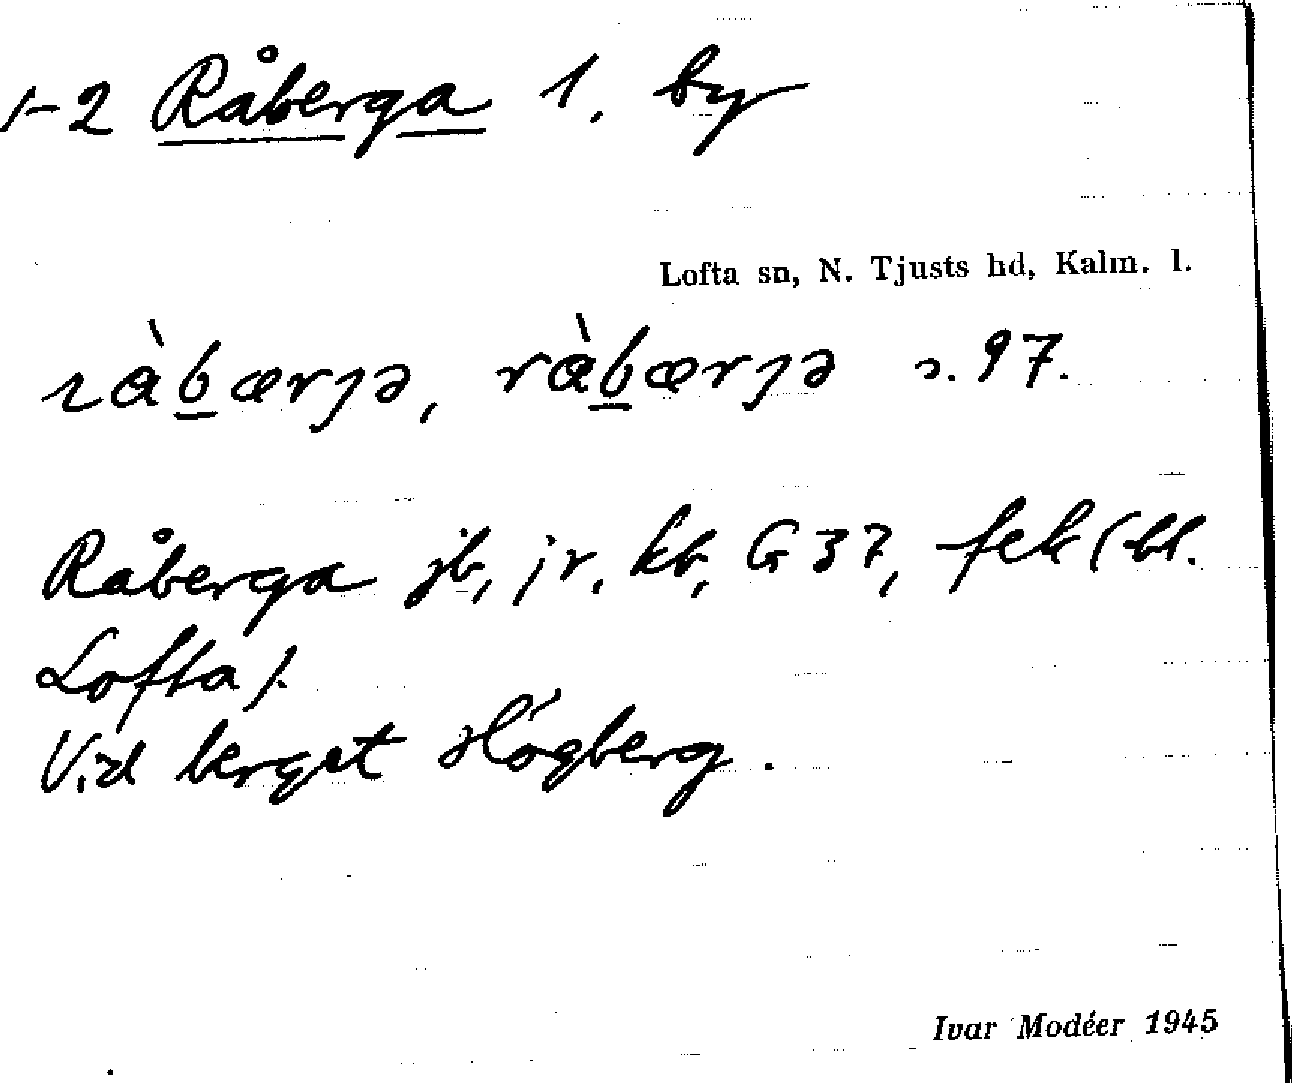 1-2 Råberga 1. by
Lofta sn, N. Tjusts hd, Kalm. l.
ràbærȷə, ràbærȷə s. 97.
Råberga jb, jr, kb, G 37, fek (bl.
Lofta).
Vid berget Högberg.
Ivar Modéer 1945